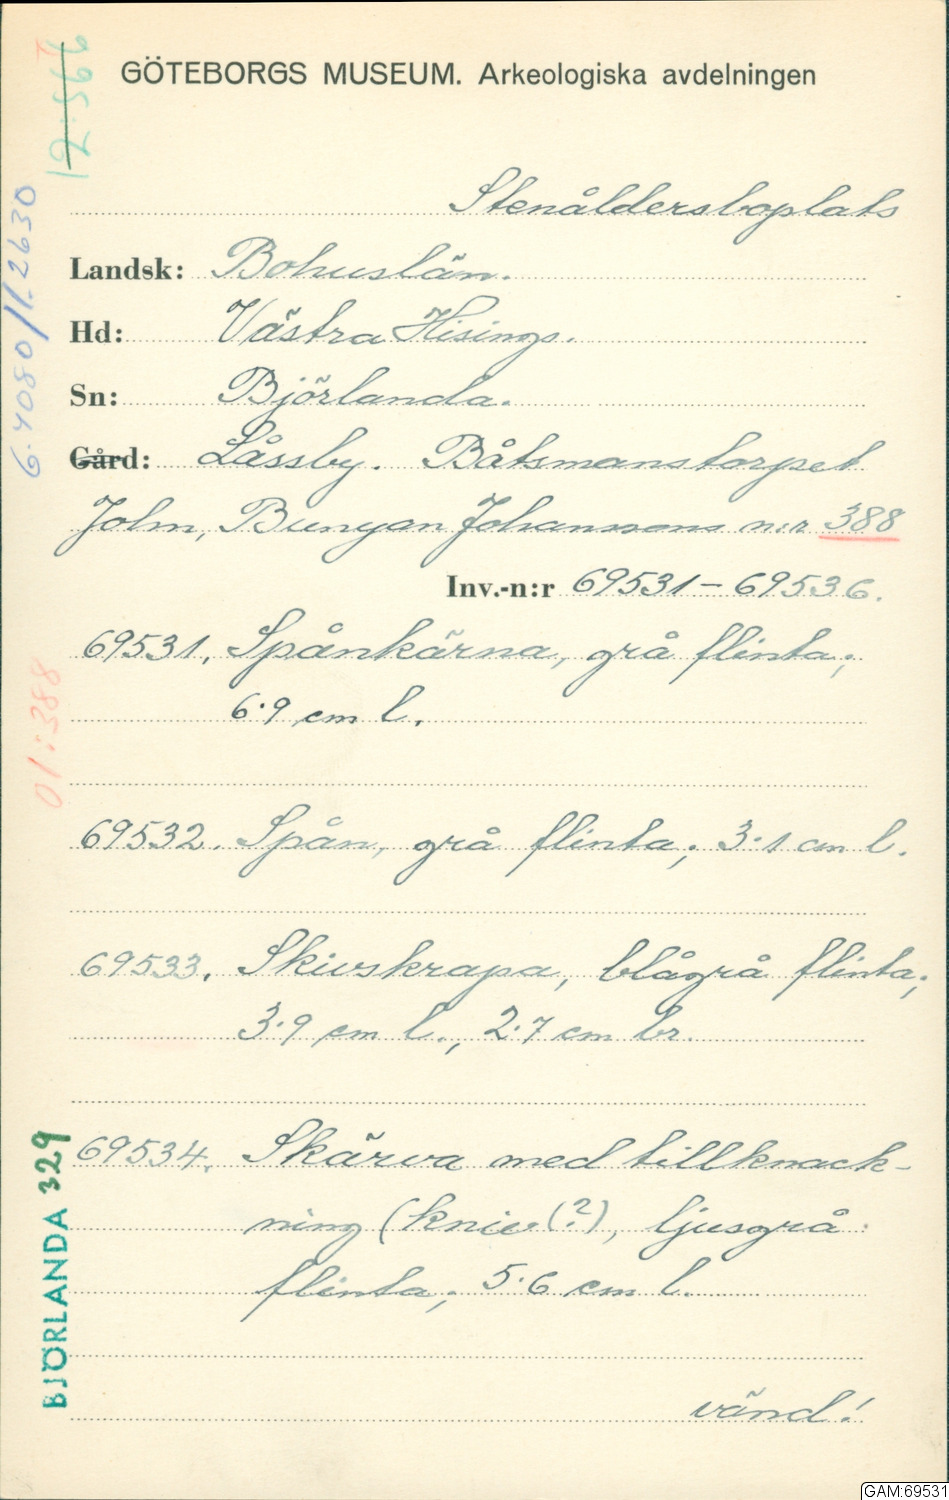 GÖTEBORGS MUSEUM. Arkeologiska avdelningen
Stenåldersboplats
Landsk: Bohuslän.
Hd: Västra Hisings.
Sn: Björlanda.
Gård: Låssby. Båtsmanstorpet
John, Bunyan Johanssons n:r 388
Inv.-n:r 69531-69536.
69531. Spånkärna, grå flinta;
6.9 cm l.
69532. Spån, grå flinta; 3.1 cm l.
69533. Skivskrapa, blågrå flinta;
3.9 cm l., 2.7 cm br.
69534. Skärva med tillknack-
ning (kniv (?), ljusgrå
flinta; 5.6 cm l.
vänd!
12.566
6.4080/1.2630
01:388
BJÖRLANDA 329
GAM:69531